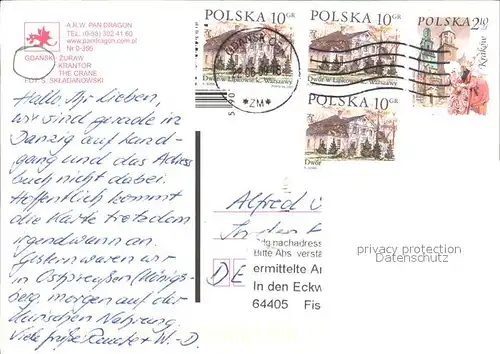 A.R.W. PAN DRAGON
TEL. (0-58) 302 41 60
www.pandragon.com.pl
Nr 0-395
GDAŃSK ŻURAW
KRANTOR
THE CRANE
FOT. S. SKŁADANOWSKI
POLSKA 10 GR
POLSKA 10 GR
POLSKA 2,10
Kraków
Dwór w Łąkach k. Warszawy
*ZM*
POLSKA 10 GR
Dwór
Hallo Ihr Lieben,
wir sind gerade in
Danzig auf Land-
gang und das Adress
buch nicht dabei.
Hoffentlich kommt
die Karte trotzdem
irgendwann an.
Gestern waren wir
in Ostpreußen (Königs-
berg, morgen auf der
Kurischen Nehrung.
Viele Grüße Renate + W.-D.
Alfred
In den
nachadress
Bitte Abs. verstä
DE
ermittelte An
In den Eckw
64405 Fis
privacy protection
Datenschutz